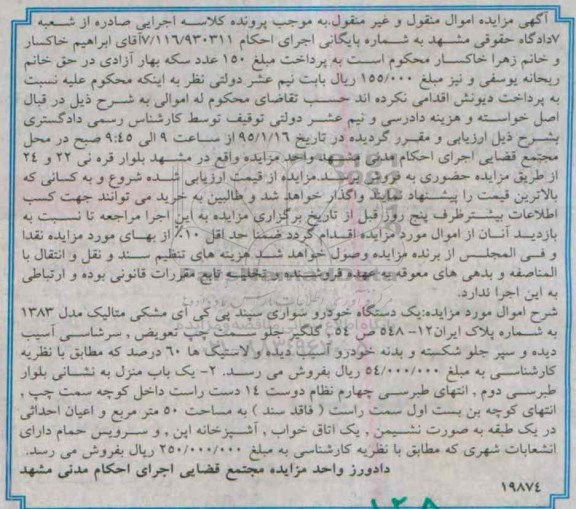 آگهی مزایده اموال منقول و غیر منقول.به موجب پرونده کلاسه اجرایی صادره از شعبه
۷دادگاه حقوقی مشهد به شماره بایگانی اجرای احکام ۷/۱۱۶/۹۳۰۳۱۱آقای ابراهیم خاکسار
و خانم زهرا خاکسار محکوم است به پرداخت مبلغ ۱۵۰ عدد سکه بهار آزادی در حق خانم
ریحانه یوسفی و نیز مبلغ ۱۵۵/۰۰۰ ریال بابت نیم عشر دولتی نظر به اینکه محکوم علیه نسبت
به پرداخت دیونش اقدامی نکرده اند حسب تقاضای محکوم له اموالی به شرح ذیل در قبال
اصل خواسته و هزینه دادرسی و نیم عشر دولتی توقیف توسط کارشناس رسمی دادگستری
بشرح ذیل ارزیابی و مقرر گردیده در تاریخ ۹۵/۱/۱۶از ساعت ۹ الی ۹:٤٥ صبح در محل
مجتمع قضایی اجرای احکام مدنی مشهد واحد مزایده واقع در مشهد بلوار قره نی ۲۲ و ۲٤
از طریق مزایده حضوری به فروش برسد.مزایده از قیمت ارزیابی شده شروع و به کسانی که
بالاترین قیمت را پیشنهاد نمایند واگذار خواهد شد و طالبین به خرید می توانند جهت کسب
اطلاعات بیشترظرف پنج روز قبل از تاریخ برگزاری مزایده به این اجرا مراجعه تا نسبت به
بازدید آنان از اموال مورد مزایده اقدام گردد ضمنا حد اقل ۱۰٪ از بهای مورد مزایده نقدا
و فی المجلس از برنده مزایده وصول خواهد شد هزینه های تنظیم سند و نقل و انتقال با
المناصفه و بدهی های معوقه به عهده فروشنده و تخلیه تابع مقررات قانونی بوده و ارتباطی
به این اجرا ندارد.
شرح اموال مورد مزایده:یک دستگاه خودرو سواری سپند پی کی آی مشکی متالیک مدل ۱۳۸۳
به شماره پلاک ایران۱۲- ٥٤۸ ص ٥٤ گلگیر جلو سمت چپ تعویض , سرشاسی آسیب
دیده و سپر جلو شکسته و بدنه خودرو آسیب دیده و لاستیک ها ۶۰ درصد که مطابق با نظریه
کارشناسی به مبلغ ٥٤/۰۰۰/۰۰۰ ریال بفروش می رسد. ۲- یک باب منزل به نشانی بلوار
طبرسی دوم , انتهای طبرسی چهارم نظام دوست ۱٤ دست راست داخل کوچه سمت چپ ,
انتهای کوچه بن بست اول سمت راست ( فاقد سند ) به مساحت ٥۰ متر مربع و اعیان احداثی
در یک طبقه به صورت نشیمن , یک اتاق خواب , آشپزخانه اپن , و سرویس حمام دارای
انشعابات شهری که مطابق با نظریه کارشناسی به مبلغ ۲٥۰/۰۰۰/۰۰۰ ریال بفروش می رسد.
دادورز واحد مزایده مجتمع قضایی اجرای احکام مدنی مشهد
۱۹۸۷٤